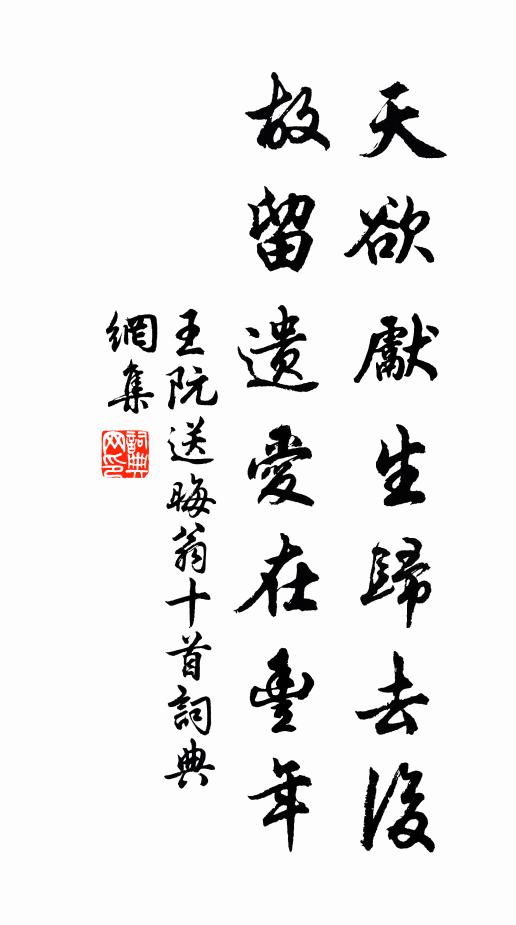 天欲獻生歸去後
故留遺愛在豐年
王阮送晦翁十首詞典
網集
詞典網印